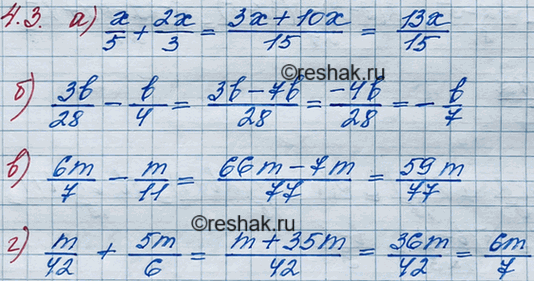 4.3. а) x/5 + 2x/3 = (3x + 10x)/15 = 13x/15
©reshak.ru
б) 3b/28 − b/4 = (3b − 7b)/28 = −4b/28 = − b/7
в) 6m/7 − m/11 = (66m − 7m)/77 = 59m/77
©reshak.ru
г) m/42 + 5m/6 = (m + 35m)/42 = 36m/42 = 6m/7